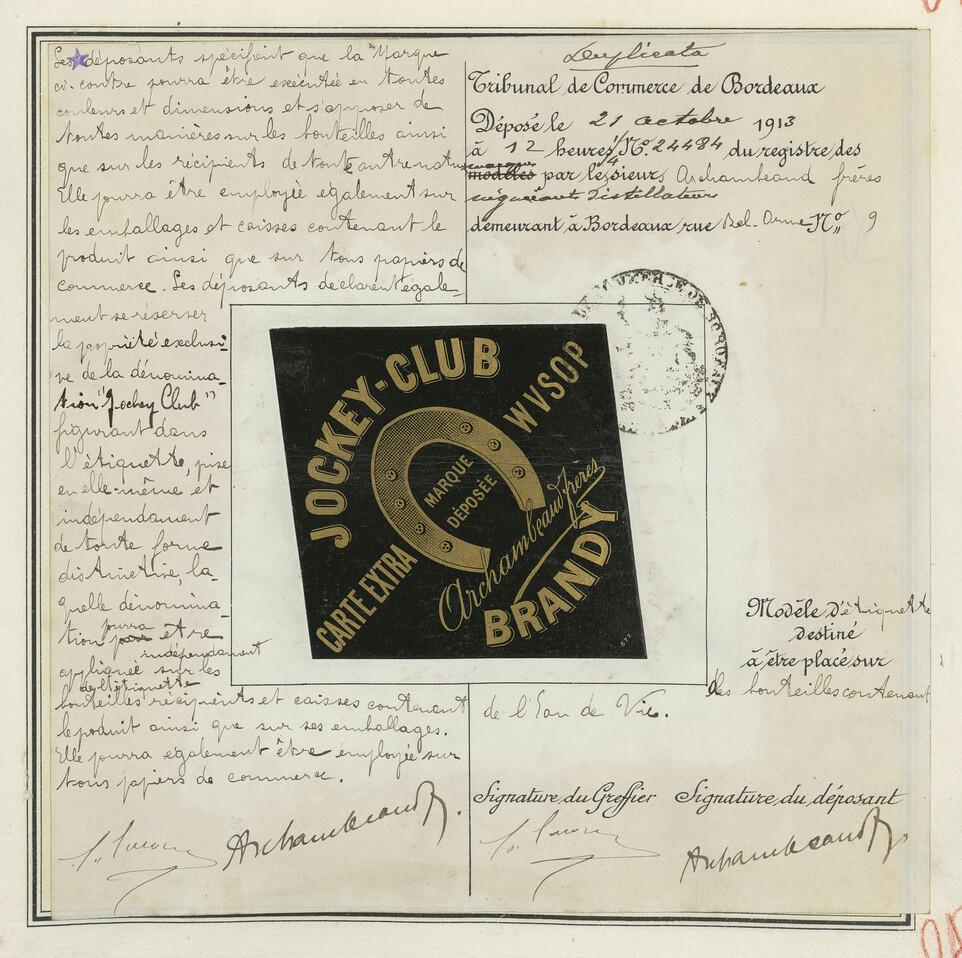 Les déposants spécifient que la Marque
ci-contre pourra être exécutée en toutes
couleurs et dimensions et s'apposer de
toutes manières sur les bouteilles ainsi
que sur les récipients de toute autre nature
Elle pourra être employée également sur
les emballages et caisses contenant le
produit ainsi que sur tous papiers de
commerce. Les déposants déclarent égale-
ment se réserver
la propriété exclusi-
ve de la dénomina-
tion "Jockey Club"
figurant dans
l'étiquette, prise
en elle-même et
indépendament
de toute forme
distinctive, la-
quelle dénomina-
pourra
tion être
indépendament
appliquée sur les
de l'étiquette
bouteilles récipients et caisses contenant
le produit ainsi que sur ses emballages.
Elle pourra également être employée sur
tous papiers de commerce.
Archambeaud
Duplicata
Tribunal de Commerce de Bordeaux
Déposé le 21 octobre 1913
à 12 heures 1/4 N° 22484 du registre des
marques
modèles par les sieurs Archambeaud frères
négociants Distillateurs
demeurant à Bordeaux rue Bel-Orme N° 9
DE BORDEAUX
JOCKEY-CLUB
WVSOP
MARQUE
DÉPOSÉE
CARTE EXTRA
Archambeaud frères
BRANDY
577
Modèle d'étiquette
destiné
à être placé sur
des bouteilles contenant
de l'Eau de Vie.
Signature du Greffier Signature du déposant
Archambeaud